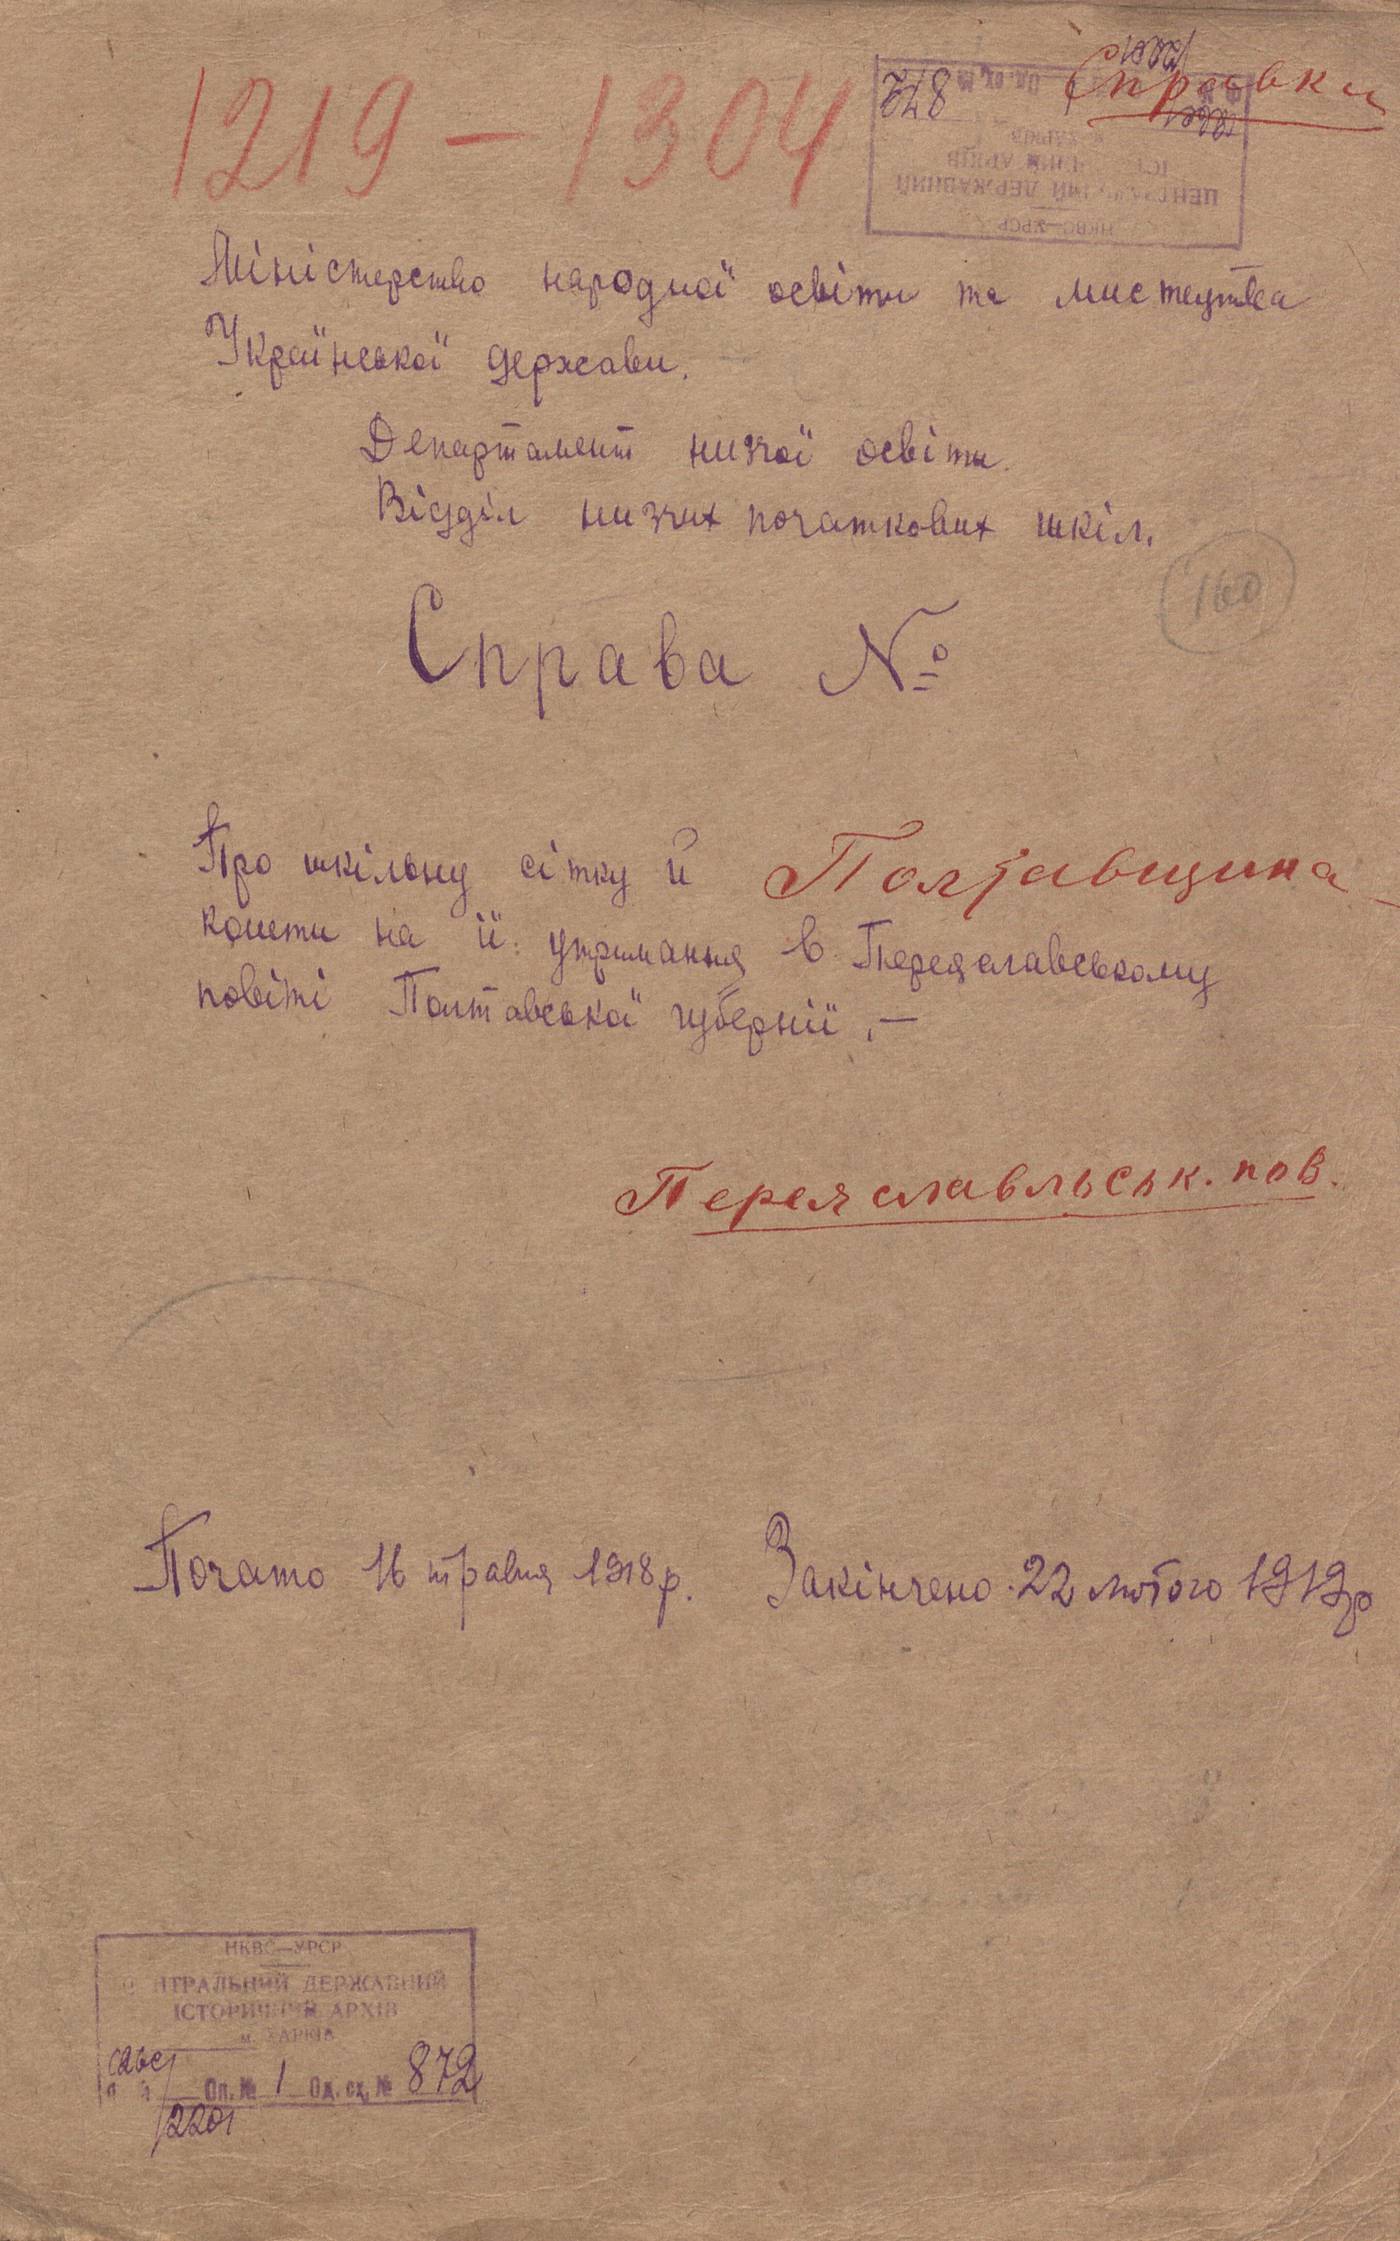 Справки
1219 – 1304
872
НКВС–УРСР
Міністерство народної освіти та мистецтва
Української держави.
Департамент низчої освіти.
Відділ низчих початкових шкіл.
160
Справа №
Про шкільну сітку й Полтавщина
кошти на її утримання в Переяславському
повіті Полтавської губернії, —
Переяславльськ. пов.
Почато 16 травня 1918 р. Закінчено 22 лютого 1919 р
НКВС–УРСР
НТРАЛЬНИЙ ДЕРЖАВНИЙ
ІСТОРИЧНИЙ АРХІВ
м. ХАРКІВ
Оп. № 1 Од. сх. № 872
2201